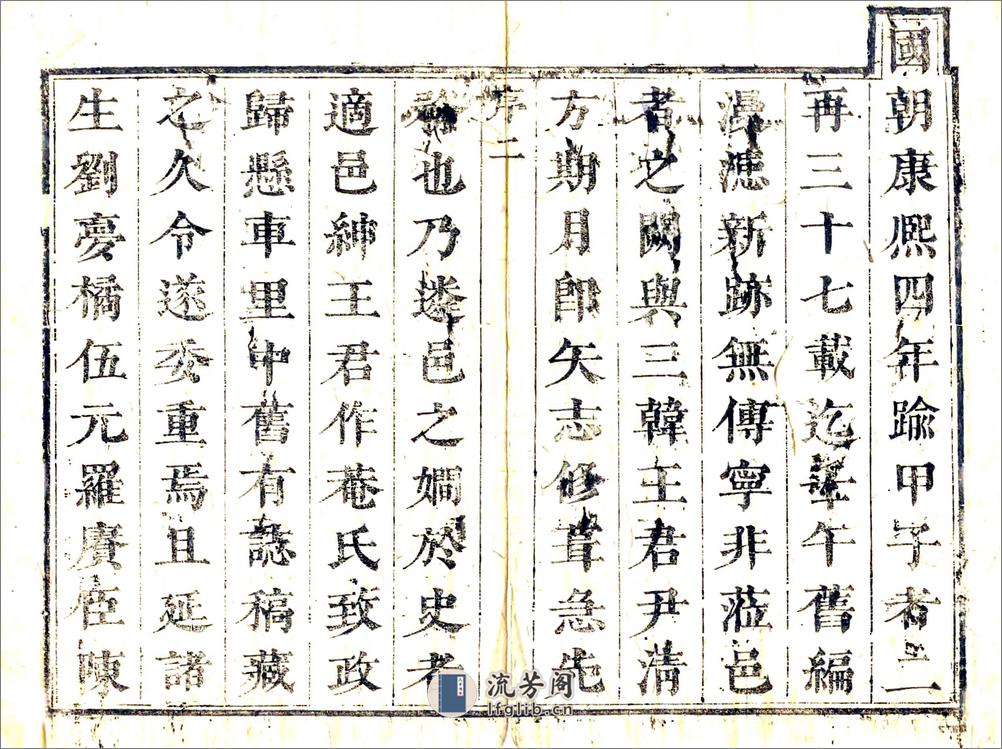 國朝康熈四年踰甲子者二
再三十七載迄壬午舊編
漫漶新跡無傳寧非蒞邑
者之闕與三韓王君尹清
方期月即矢志修葺急先
序 二
務也乃遴邑之嫺於史者
適邑紳王君作菴氏致政
歸懸車里中舊有誌稿藏
之久令遂委重焉且延諸
生劉夢橘伍元羅賡臣陳
流芳阁
lfglib.cn